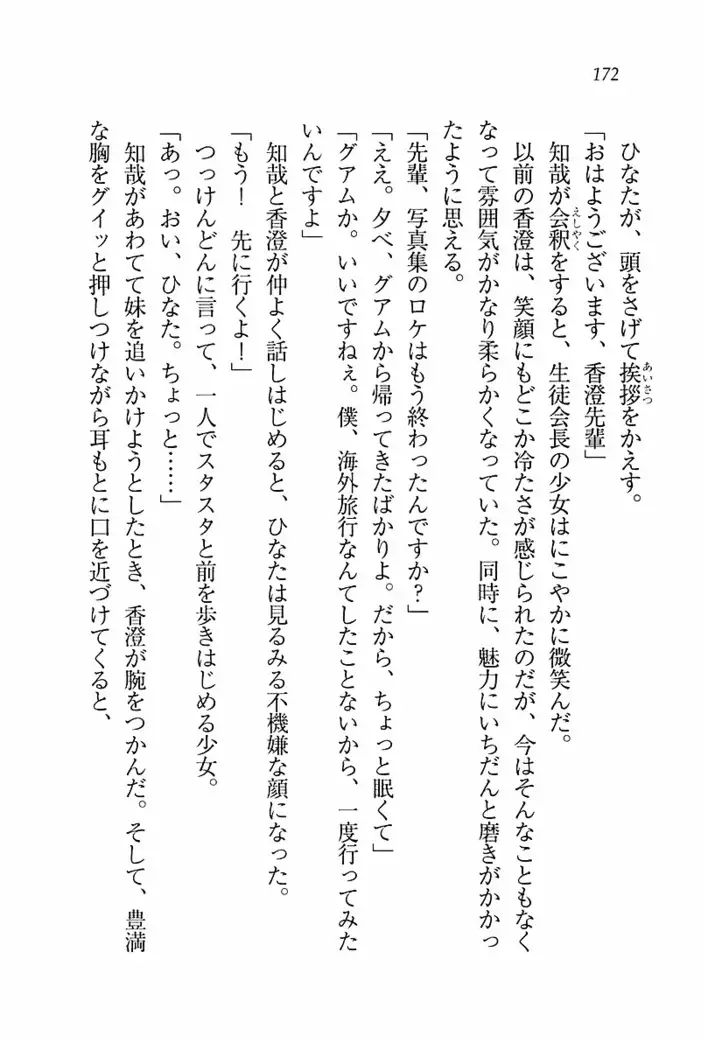 172
ひなたが、頭をさげて挨拶をかえす。
「おはようございます、香澄先輩」
知哉が会釈をすると、生徒会長の少女はにこやかに微笑んだ。
以前の香澄は、笑顔にもどこか冷たさが感じられたのだが、今はそんなこともなく
なって雰囲気がかなり柔らかくなっていた。同時に、魅力にいちだんと磨きがかかっ
たように思える。
「先輩、写真集のロケはもう終わったんですか？」
「ええ。夕べ、グアムから帰ってきたばかりよ。だから、ちょっと眠くて」
「グアムか。いいですねぇ。僕、海外旅行なんてしたことないから、一度行ってみた
いんですよ」
知哉と香澄が仲よく話しはじめると、ひなたは見るみる不機嫌な顔になった。
「もう！　先に行くよ！」
つっけんどんに言って、一人でスタスタと前を歩きはじめる少女。
「あっ。おい、ひなた。ちょっと……」
知哉があわてて妹を追いかけようとしたとき、香澄が腕をつかんだ。そして、豊満
な胸をグイッと押しつけながら耳もとに口を近づけてくると、